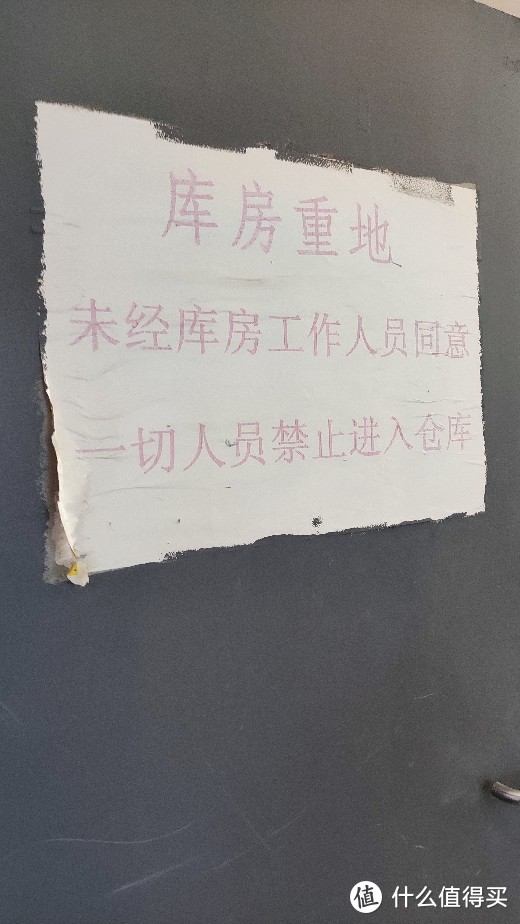 库房重地
未经库房工作人员同意
一切人员禁止进入仓库
值 什么值得买